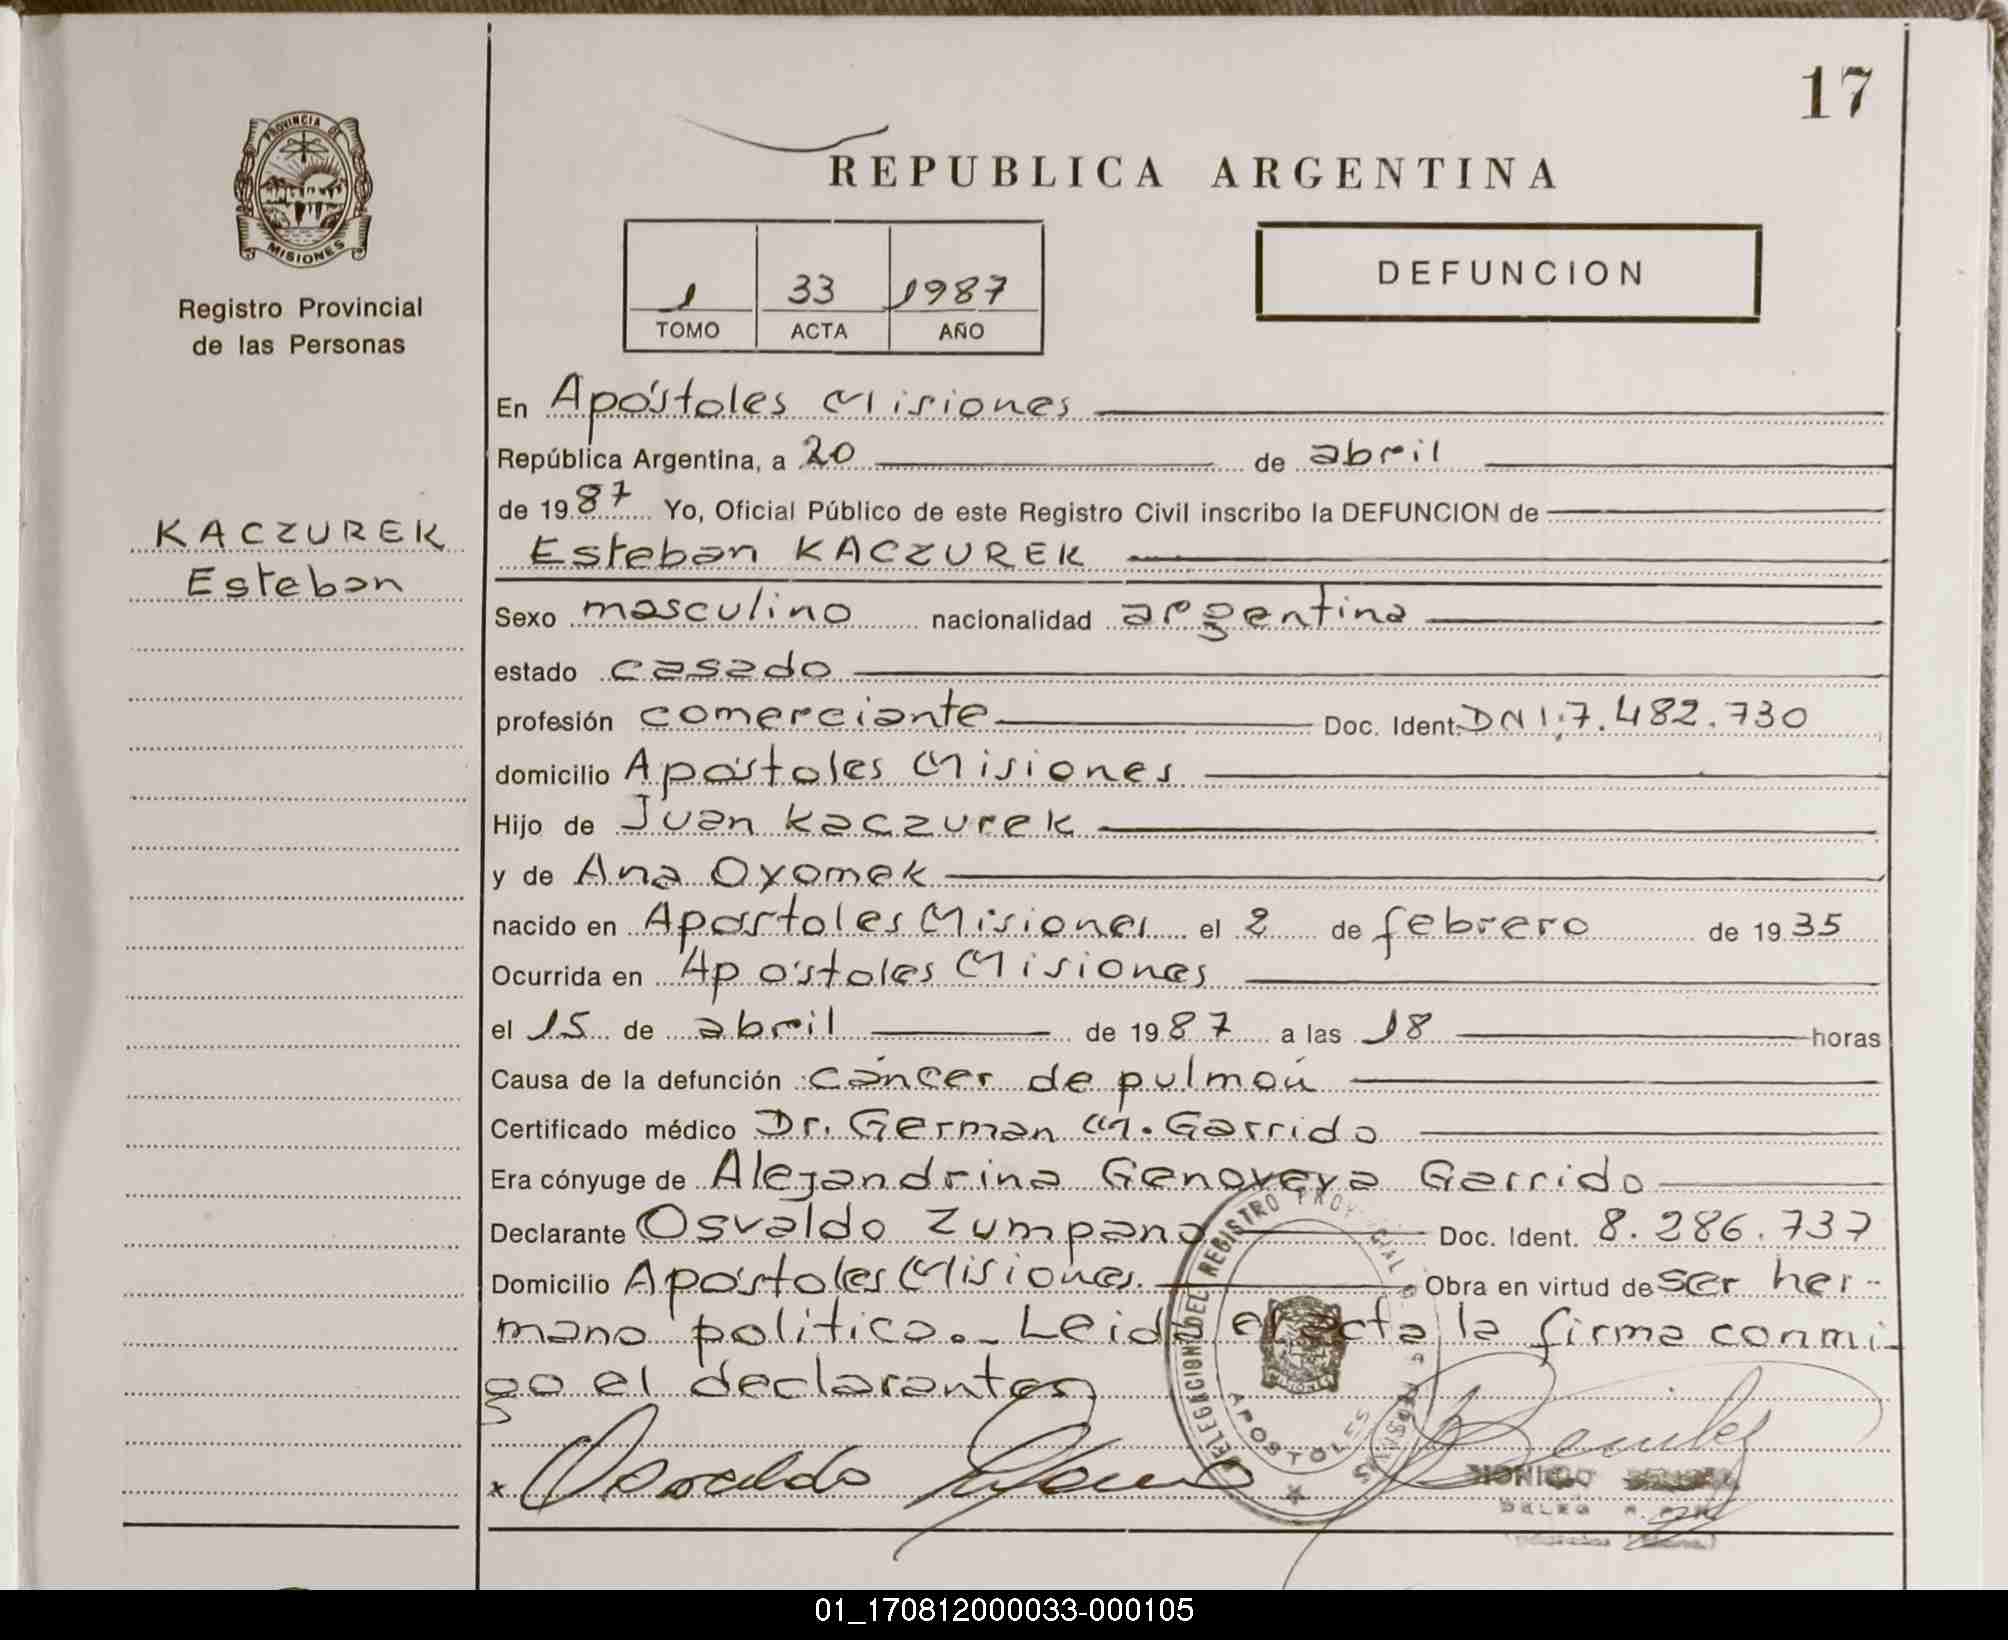 17
PROVINCIA DE
MISIONES
Registro Provincial
de las Personas
REPUBLICA ARGENTINA
1 33 1987
TOMO ACTA AÑO
DEFUNCION
KACZUREK
Esteban
En Apóstoles Misiones
República Argentina, a 20 de abril
de 1987 Yo, Oficial Público de este Registro Civil inscribo la DEFUNCION de
Esteban KACZUREK
Sexo masculino nacionalidad argentina
estado casado
profesión comerciante Doc. Ident. DNI. 7.482.730
domicilio Apóstoles Misiones
Hijo de Juan Kaczurek
y de Ana Oyomek
nacido en Apóstoles Misiones el 2 de febrero de 1935
Ocurrida en Apóstoles Misiones
el 15 de abril de 1987 a las 18 horas
Causa de la defunción cáncer de pulmón
Certificado médico Dr. German M. Garrido
Era cónyuge de Alejandrina Genoveva Garrido
Declarante Osvaldo Zumpano Doc. Ident. 8.286.737
Domicilio Apóstoles Misiones. Obra en virtud de ser her-
mano político. Leida el acta la firma conmi-
go el declarante
DELEGACION DEL REGISTRO PROVINCIAL
APOSTOLES
x Osvaldo
01_170812000033-000105